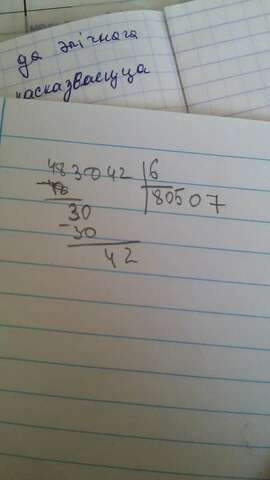 да элічнага
расказваецца
483042 6
-48 80507
30
-30
42